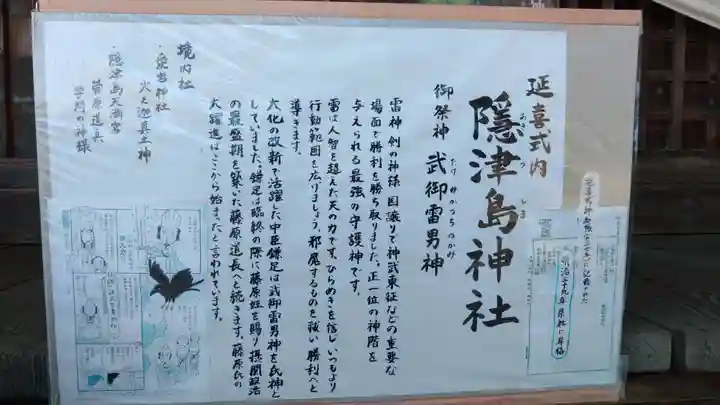 延喜式内
隠津島神社
おき つ しま
御祭神 武御雷男神
たけ みかづち をのかみ
雷神 剣の神様 国譲りや神武東征などの重要な
場面で勝利を勝ち取りました。正一位の神階を
与えられる最強の守護神です。
雷は人智を超えた天の力です。ひらめきを信じいつもより
行動範囲を広げましょう。邪魔するものを祓い勝利へと
導きます。
大化の改新で活躍した中臣鎌足は武御雷男神を氏神と
していました。鎌足は臨終の際に藤原姓を賜り摂関政治
の最盛期を築いた藤原道長へと続きます。藤原氏の
大躍進はここから始まったと言われています。
境内社
・愛宕神社
火之迦具土神
・隠津島天満宮
菅原道真
学問の神様
明治二十九年県社に昇格